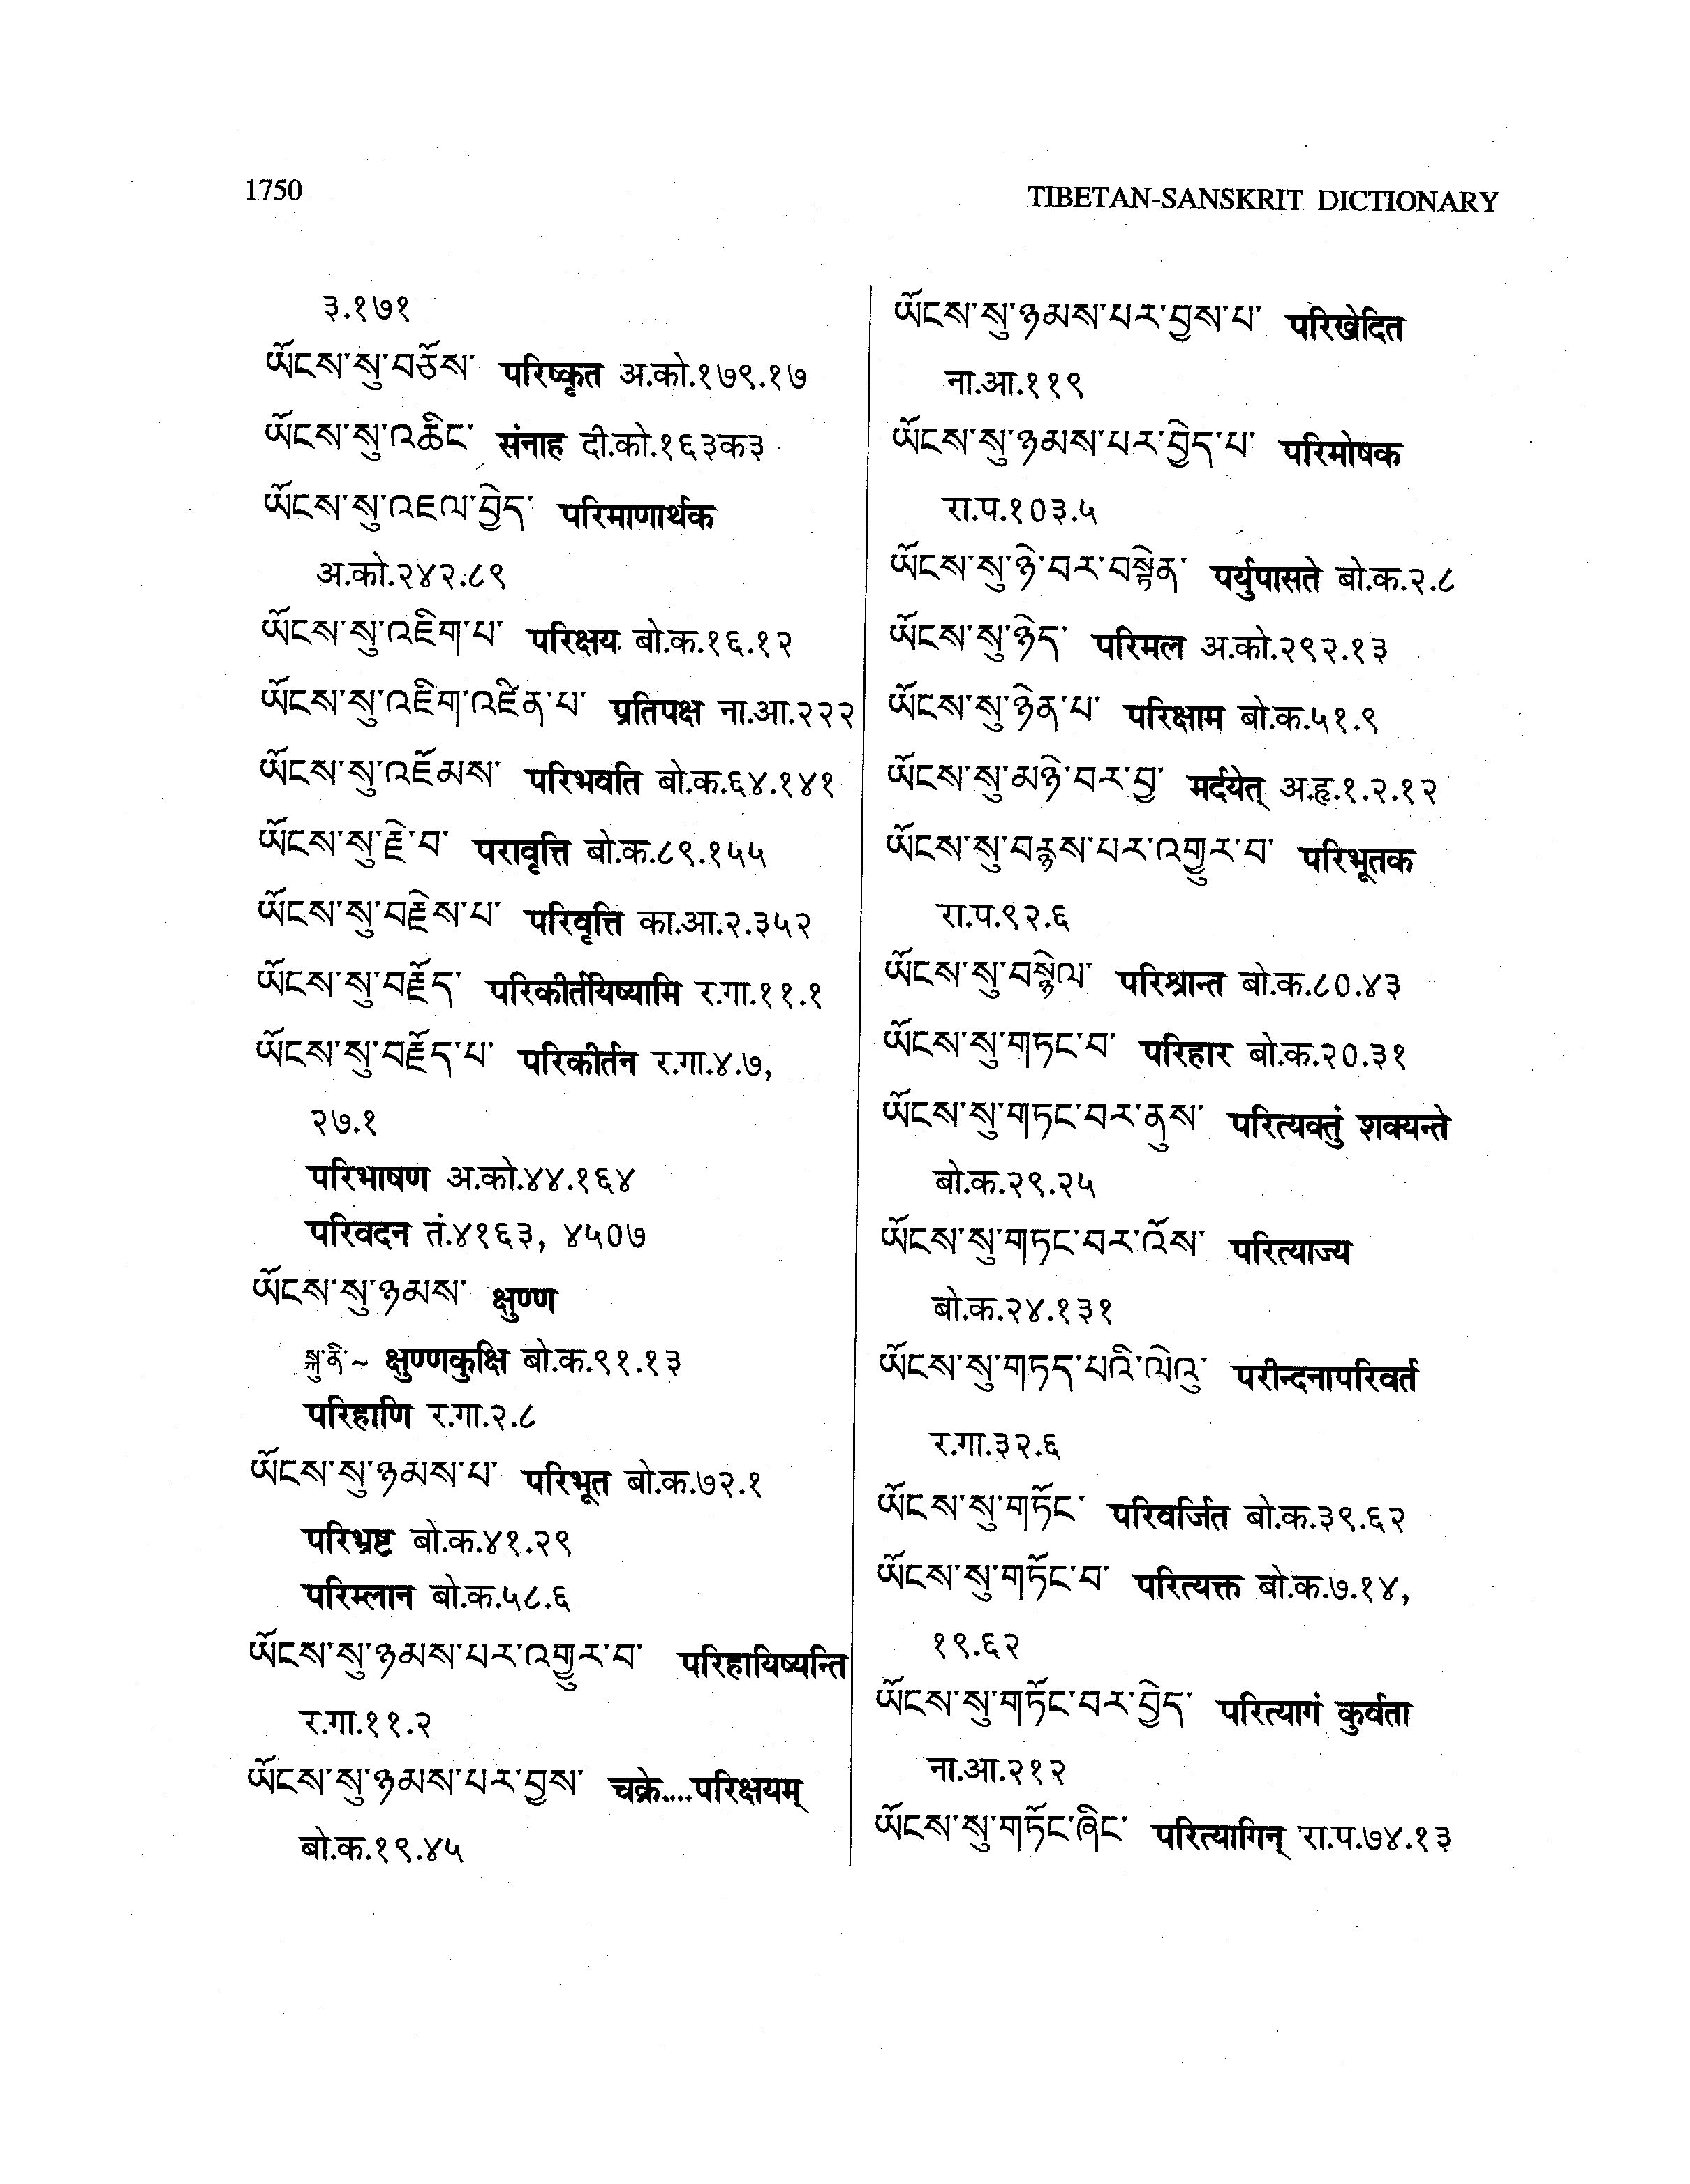 1750
TIBETAN-SANSKRIT DICTIONARY
३.१७१
ཡོངས་སུ་བཅོས་ परिष्कृत अ.को.१७९.१७
ཡོངས་སུ་འཆིང་ संनाह दी.को.१६३क३
ཡོངས་སུ་འཇལ་བྱེད་ परिमाणार्थक
अ.को.२४२.८९
ཡོངས་སུ་འཇིག་པ་ परिक्षय बो.क.१६.१२
ཡོངས་སུ་འཇིག་འཛིན་པ་ प्रतिपक्ष ना.आ.२२२
ཡོངས་སུ་འཇོམས་ परिभवति बो.क.६४.१४१
ཡོངས་སུ་རྗེ་བ་ परावृत्ति बो.क.८९.१५५
ཡོངས་སུ་བརྗེས་པ་ परिवृत्ति का.आ.२.३५२
ཡོངས་སུ་བརྗོད་ परिकीर्तयिष्यामि र.गा.११.१
ཡོངས་སུ་བརྗོད་པ་ परिकीर्तन र.गा.४.७,
२७.१
परिभाषण अ.को.४४.१६४
परिवदन तं.४१६३, ४५०७
ཡོངས་སུ་ཉམས་ क्षुण्ण
སྐུ་ནི་~ क्षुण्णकुक्षि बो.क.९१.१३
परिहाणि र.गा.२.८
ཡོངས་སུ་ཉམས་པ་ परिभूत बो.क.७२.१
परिभ्रष्ट बो.क.४१.२९
परिम्लान बो.क.५८.६
ཡོངས་སུ་ཉམས་པར་འགྱུར་བ་ परिहायिष्यन्ति
र.गा.११.२
ཡོངས་སུ་ཉམས་པར་བྱས་ चक्रे....परिक्षयम्
बो.क.१९.४५
ཡོངས་སུ་ཉམས་པར་བྱས་པ་ परिखेदित
ना.आ.११९
ཡོངས་སུ་ཉམས་པར་བྱེད་པ་ परिमोषक
रा.प.१०३.५
ཡོངས་སུ་ཉེ་བར་བསྟེན་ पर्युपासते बो.क.२.८
ཡོངས་སུ་ཉེད་ परिमल अ.को.२९२.१३
ཡོངས་སུ་ཉེན་པ་ परिक्षाम बो.क.५१.९
ཡོངས་སུ་མཉེ་བར་བྱ་ मर्दयेत् अ.हृ.१.२.१२
ཡོངས་སུ་བརྙས་པར་འགྱུར་བ་ परिभूतक
रा.प.९२.६
ཡོངས་སུ་བསྙེལ་ परिश्रान्त बो.क.८०.४३
ཡོངས་སུ་གཏང་བ་ परिहार बो.क.२०.३१
ཡོངས་སུ་གཏང་བར་ནུས་ परित्यक्तुं शक्यन्ते
बो.क.२९.२५
ཡོངས་སུ་གཏང་བར་འོས་ परित्याज्य
बो.क.२४.१३१
ཡོངས་སུ་གཏད་པའི་ལེའུ་ परीन्दनापरिवर्त
र.गा.३२.६
ཡོངས་སུ་གཏོང་ परिवर्जित बो.क.३९.६२
ཡོངས་སུ་གཏོང་བ་ परित्यक्त बो.क.७.१४,
१९.६२
ཡོངས་སུ་གཏོང་བར་བྱེད་ परित्यागं कुर्वता
ना.आ.२१२
ཡོངས་སུ་གཏོང་ཞིང་ परित्यागिन् रा.प.७४.१३